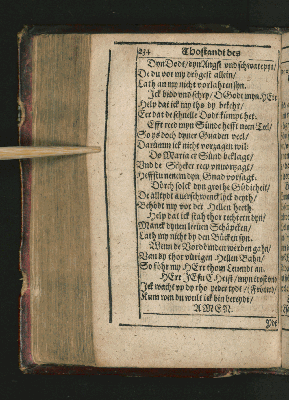 234 Thostandt des
Dyn Dodt / dyn Angst vnd schwatesyn /
De du vor my drögest allein /
Lath an my nicht vorlahren syn.
Ick bidd vnd schrey / O Godt myn HErr
Help dat ick my tho dy bekehr /
Eer dat de schnelle Dodt kumpt her.
Efft reed myn Sünde hefft neen Teel /
So ys doch dyner Gnaden veel /
Darümm ick nicht vorzagen wil:
Do Maria er Sünd beklagt /
Vnd de Schecker reep vnuorzagt /
Hefftu nenem dyn Gnad vorsagt.
Dörch solck dyn grothe Güdicheit /
De alltydt auerschwenck lyck deyth /
Behödt my vor der Hellen heeth.
Help dat ick stah thor rechtern dyn /
Manck dynen leuen Schäpcken /
Lath my nicht by den Bücken syn.
Wenn de Vordömden werden gahn /
Van dy thor vürigen Hellen Bahn /
So föhr my HErr thom Leuendt an.
HErr JEsu Christ / myn trost vnd
Ick wacht vp dy tho yeder tydt / (Frouwd /
Kum wen du wult ick bin bereydt /
AMEN.